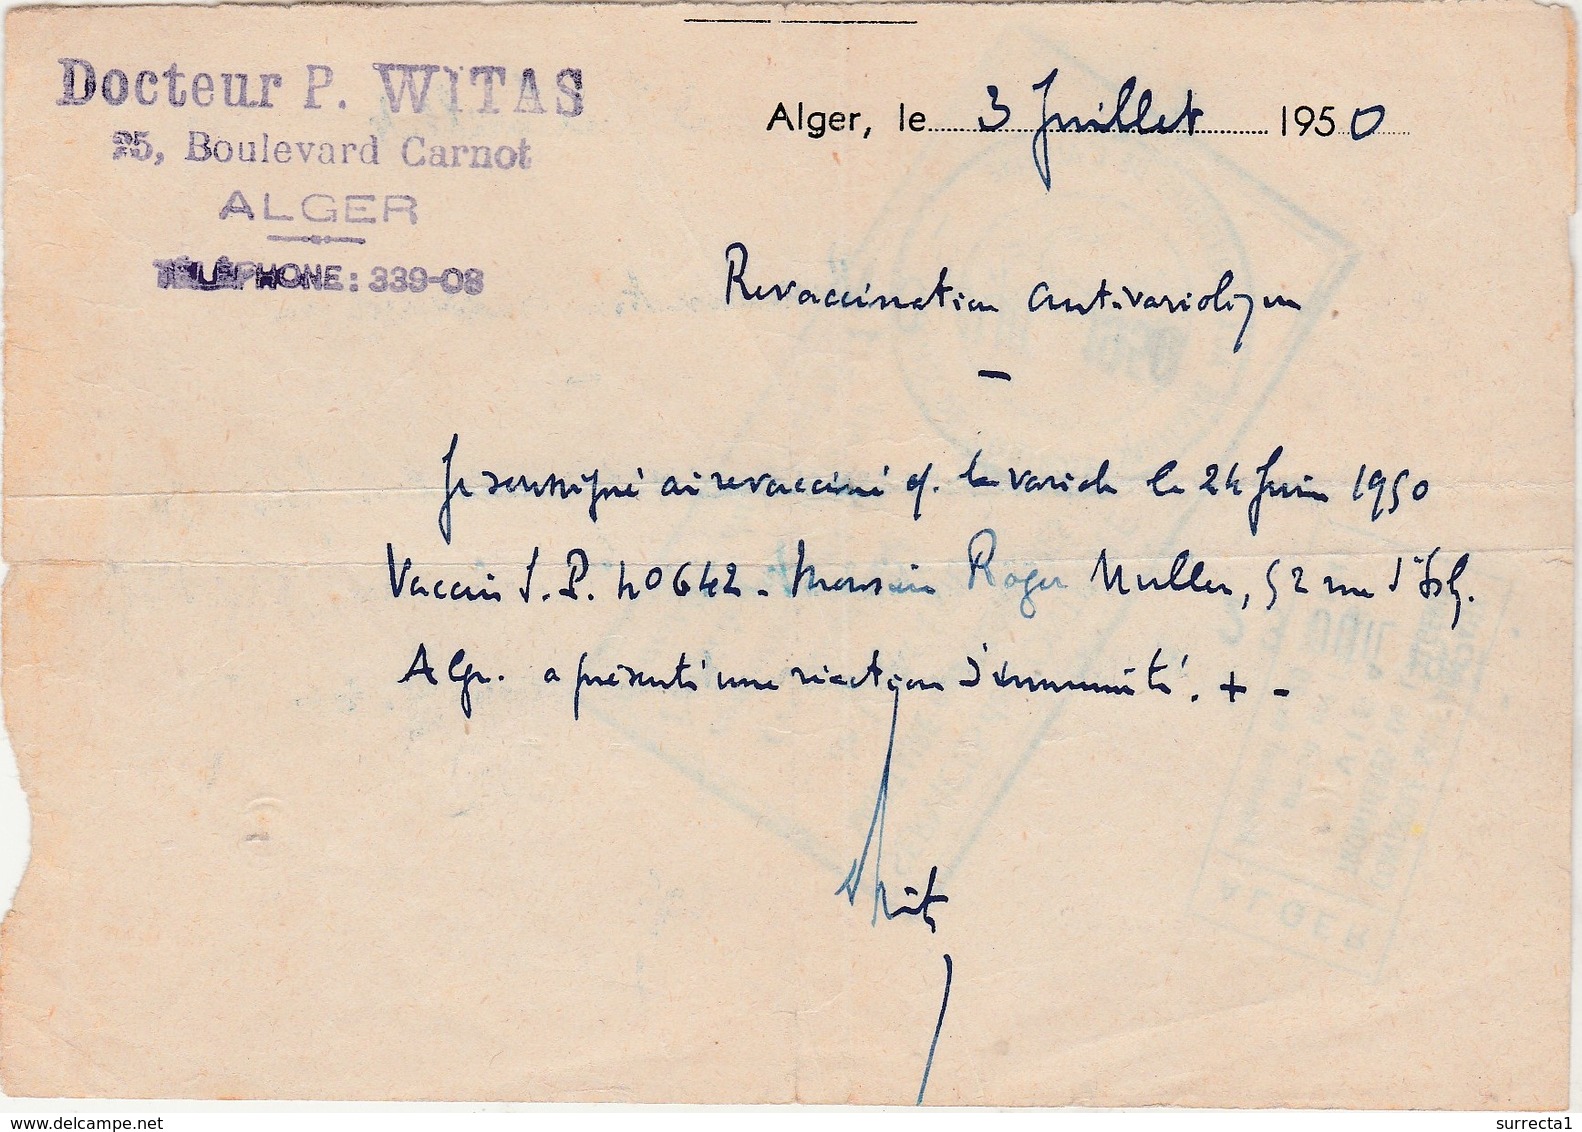 Docteur P. WITAS
25, Boulevard Carnot
ALGER
TÉLÉPHONE: 339-08
Alger, le 3 Juillet 1950
Revaccination antivariolique
Je soussigné ai revacciné c/. la variole le 24 Juin 1950
Vaccin I.P. 40642. Monsieur Roger Muller, 52 rue d'Isly.
Alger. a présenté une réaction d'immunité. + -
ALGER
delcampe.net
surrecta1